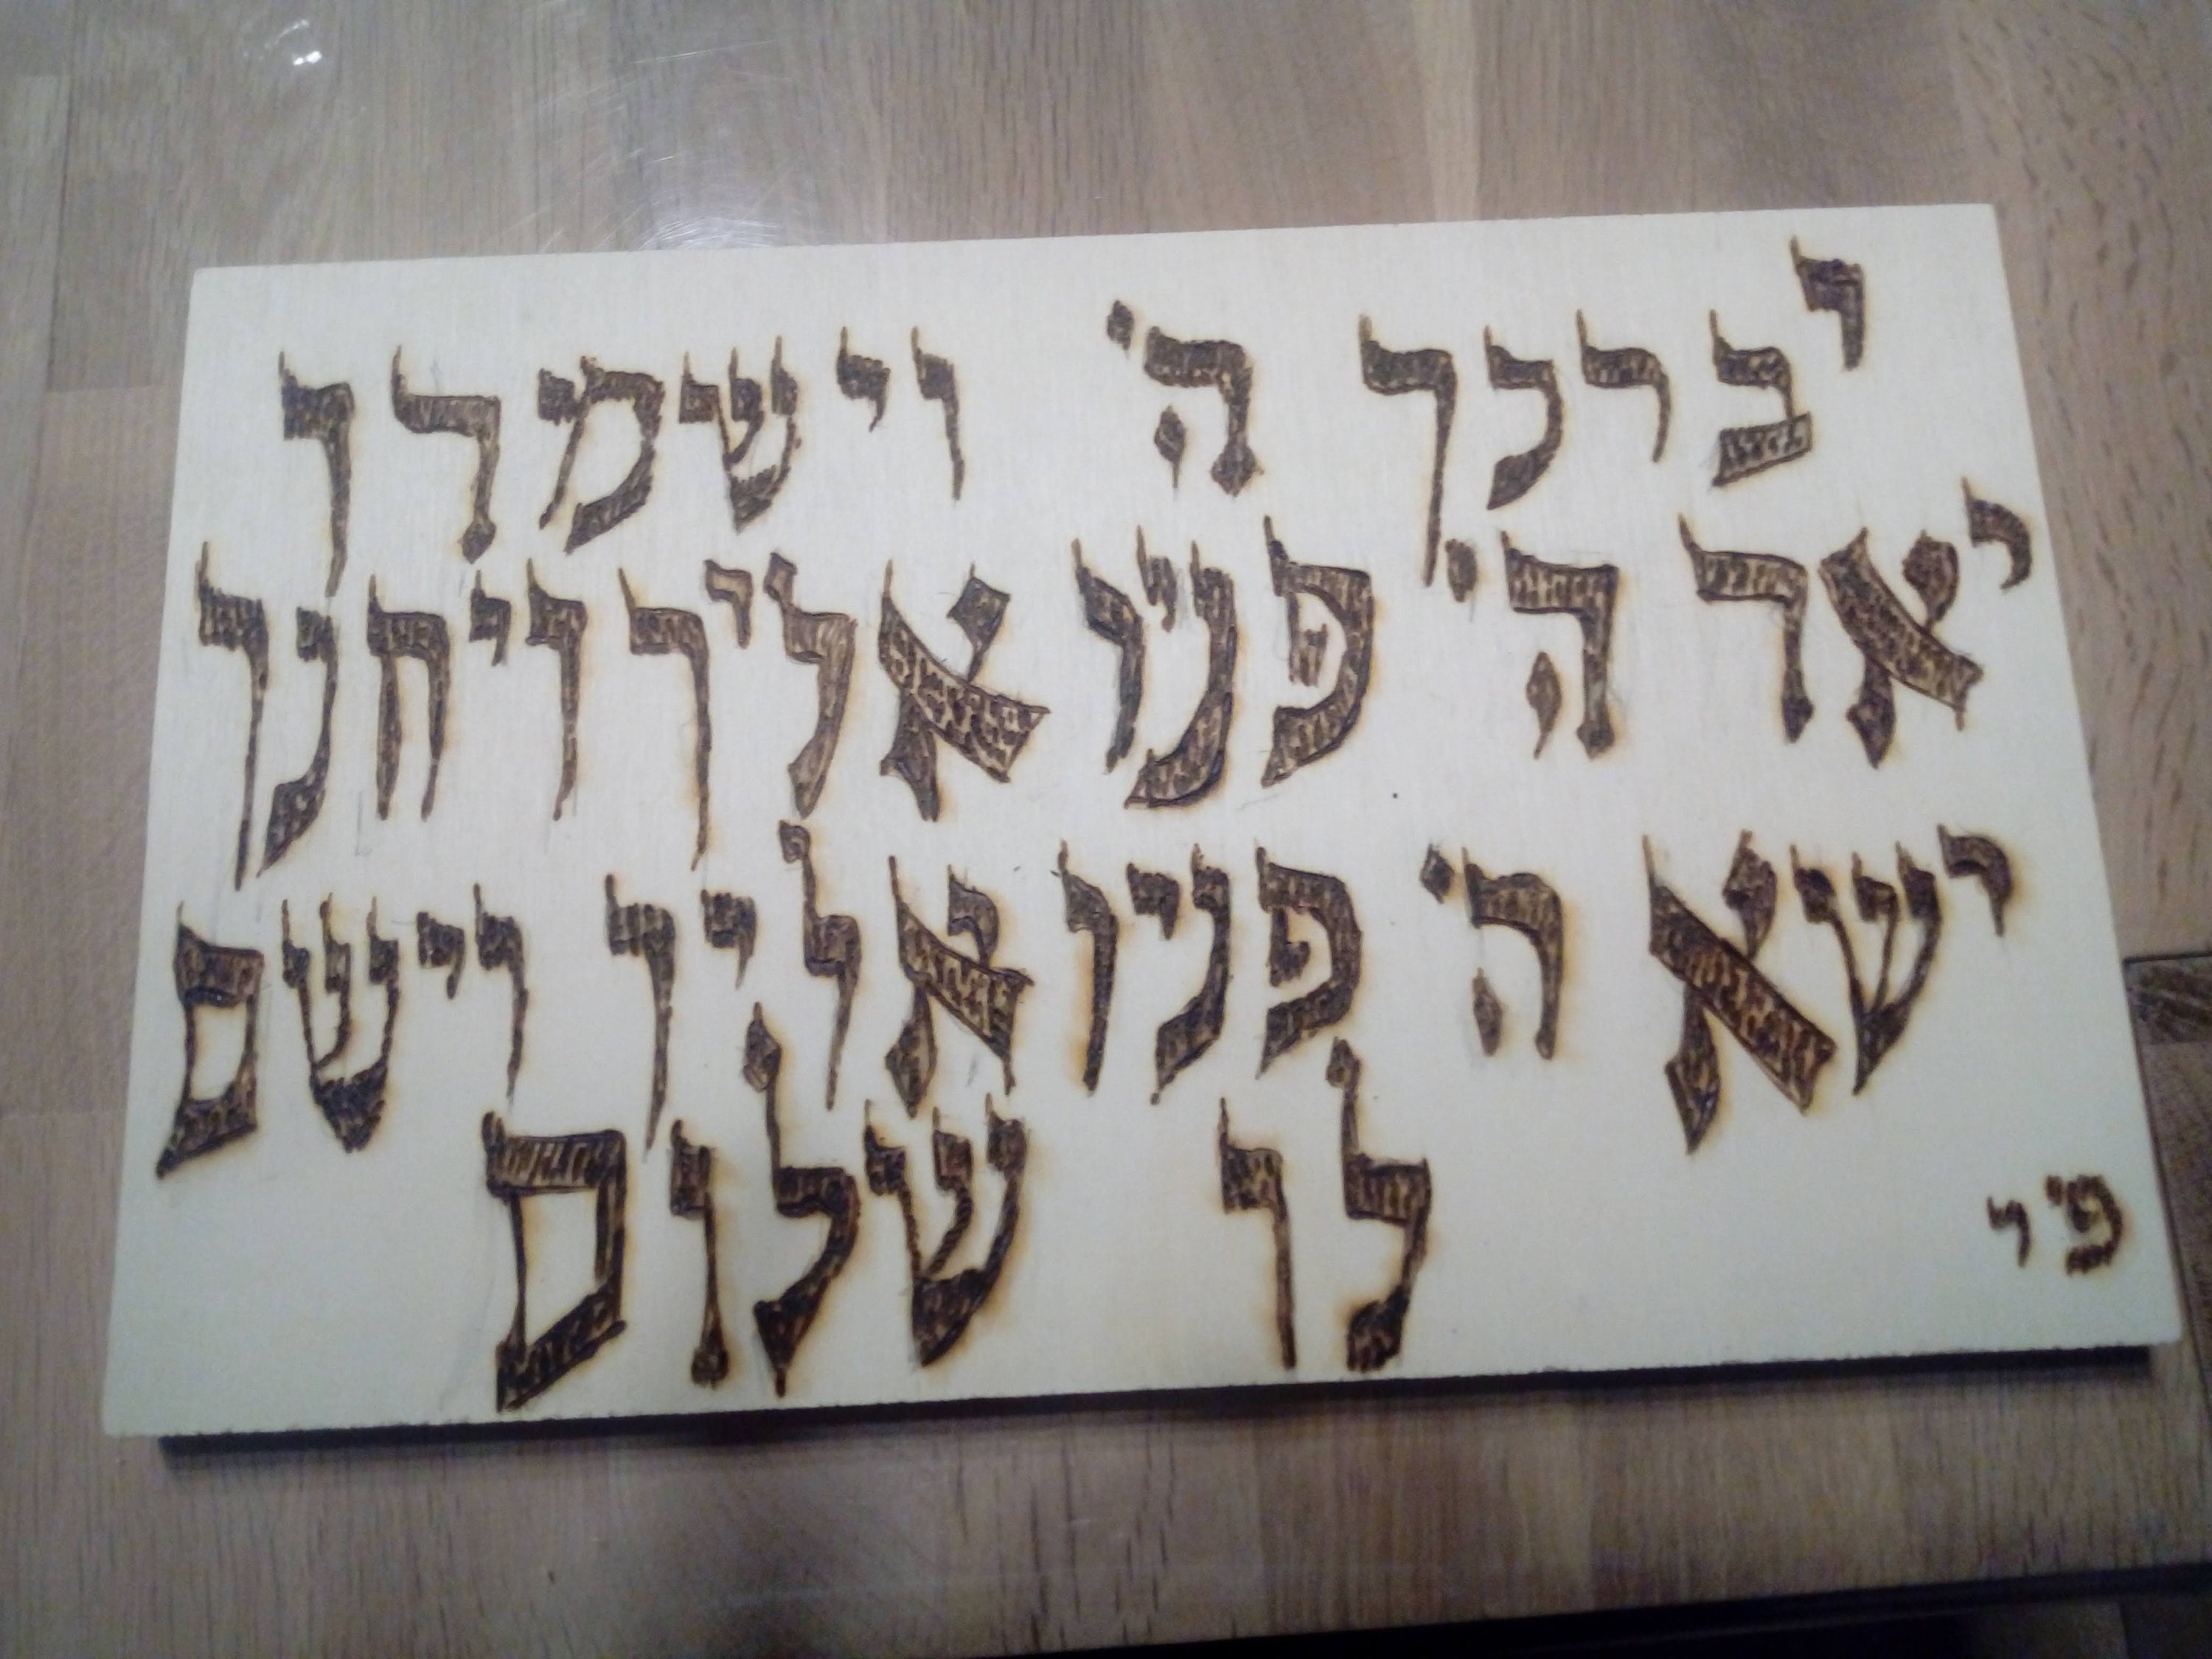 יברכך ה' וישמרך
יאר ה' פניו אליך ויחנך
ישא ה' פניו אליך וישם
לך שלום
פ'י